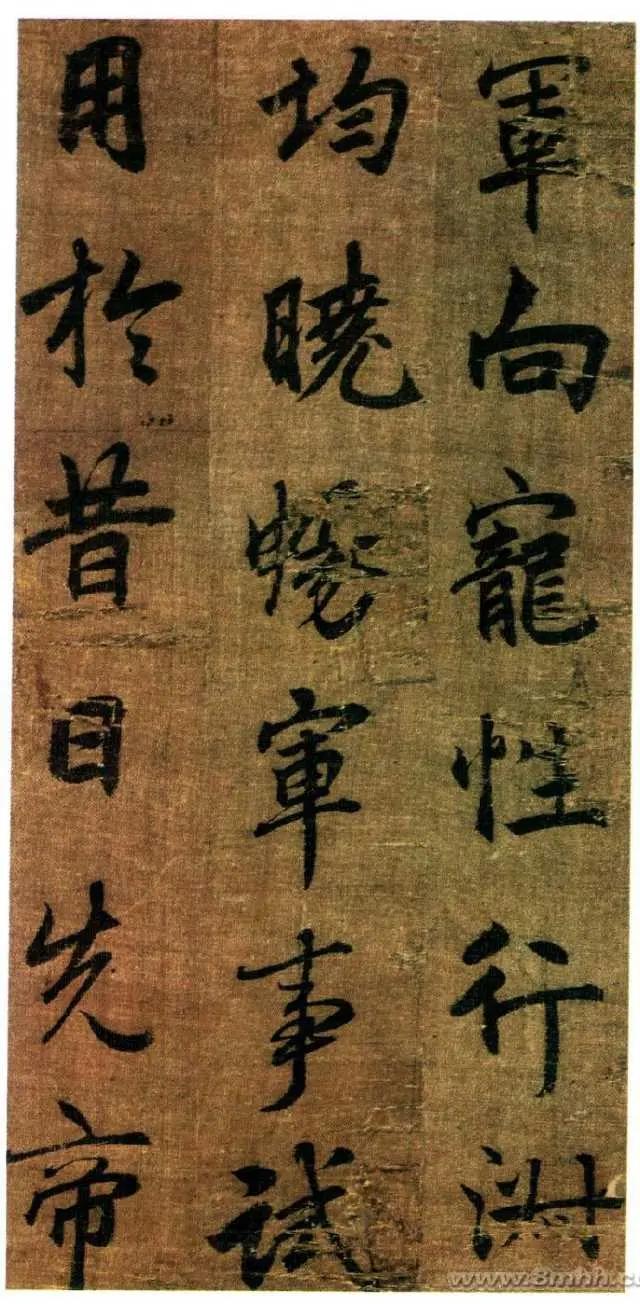 軍向寵性行淑
均曉暢軍事試
用於昔日先帝
www.8mhh.c